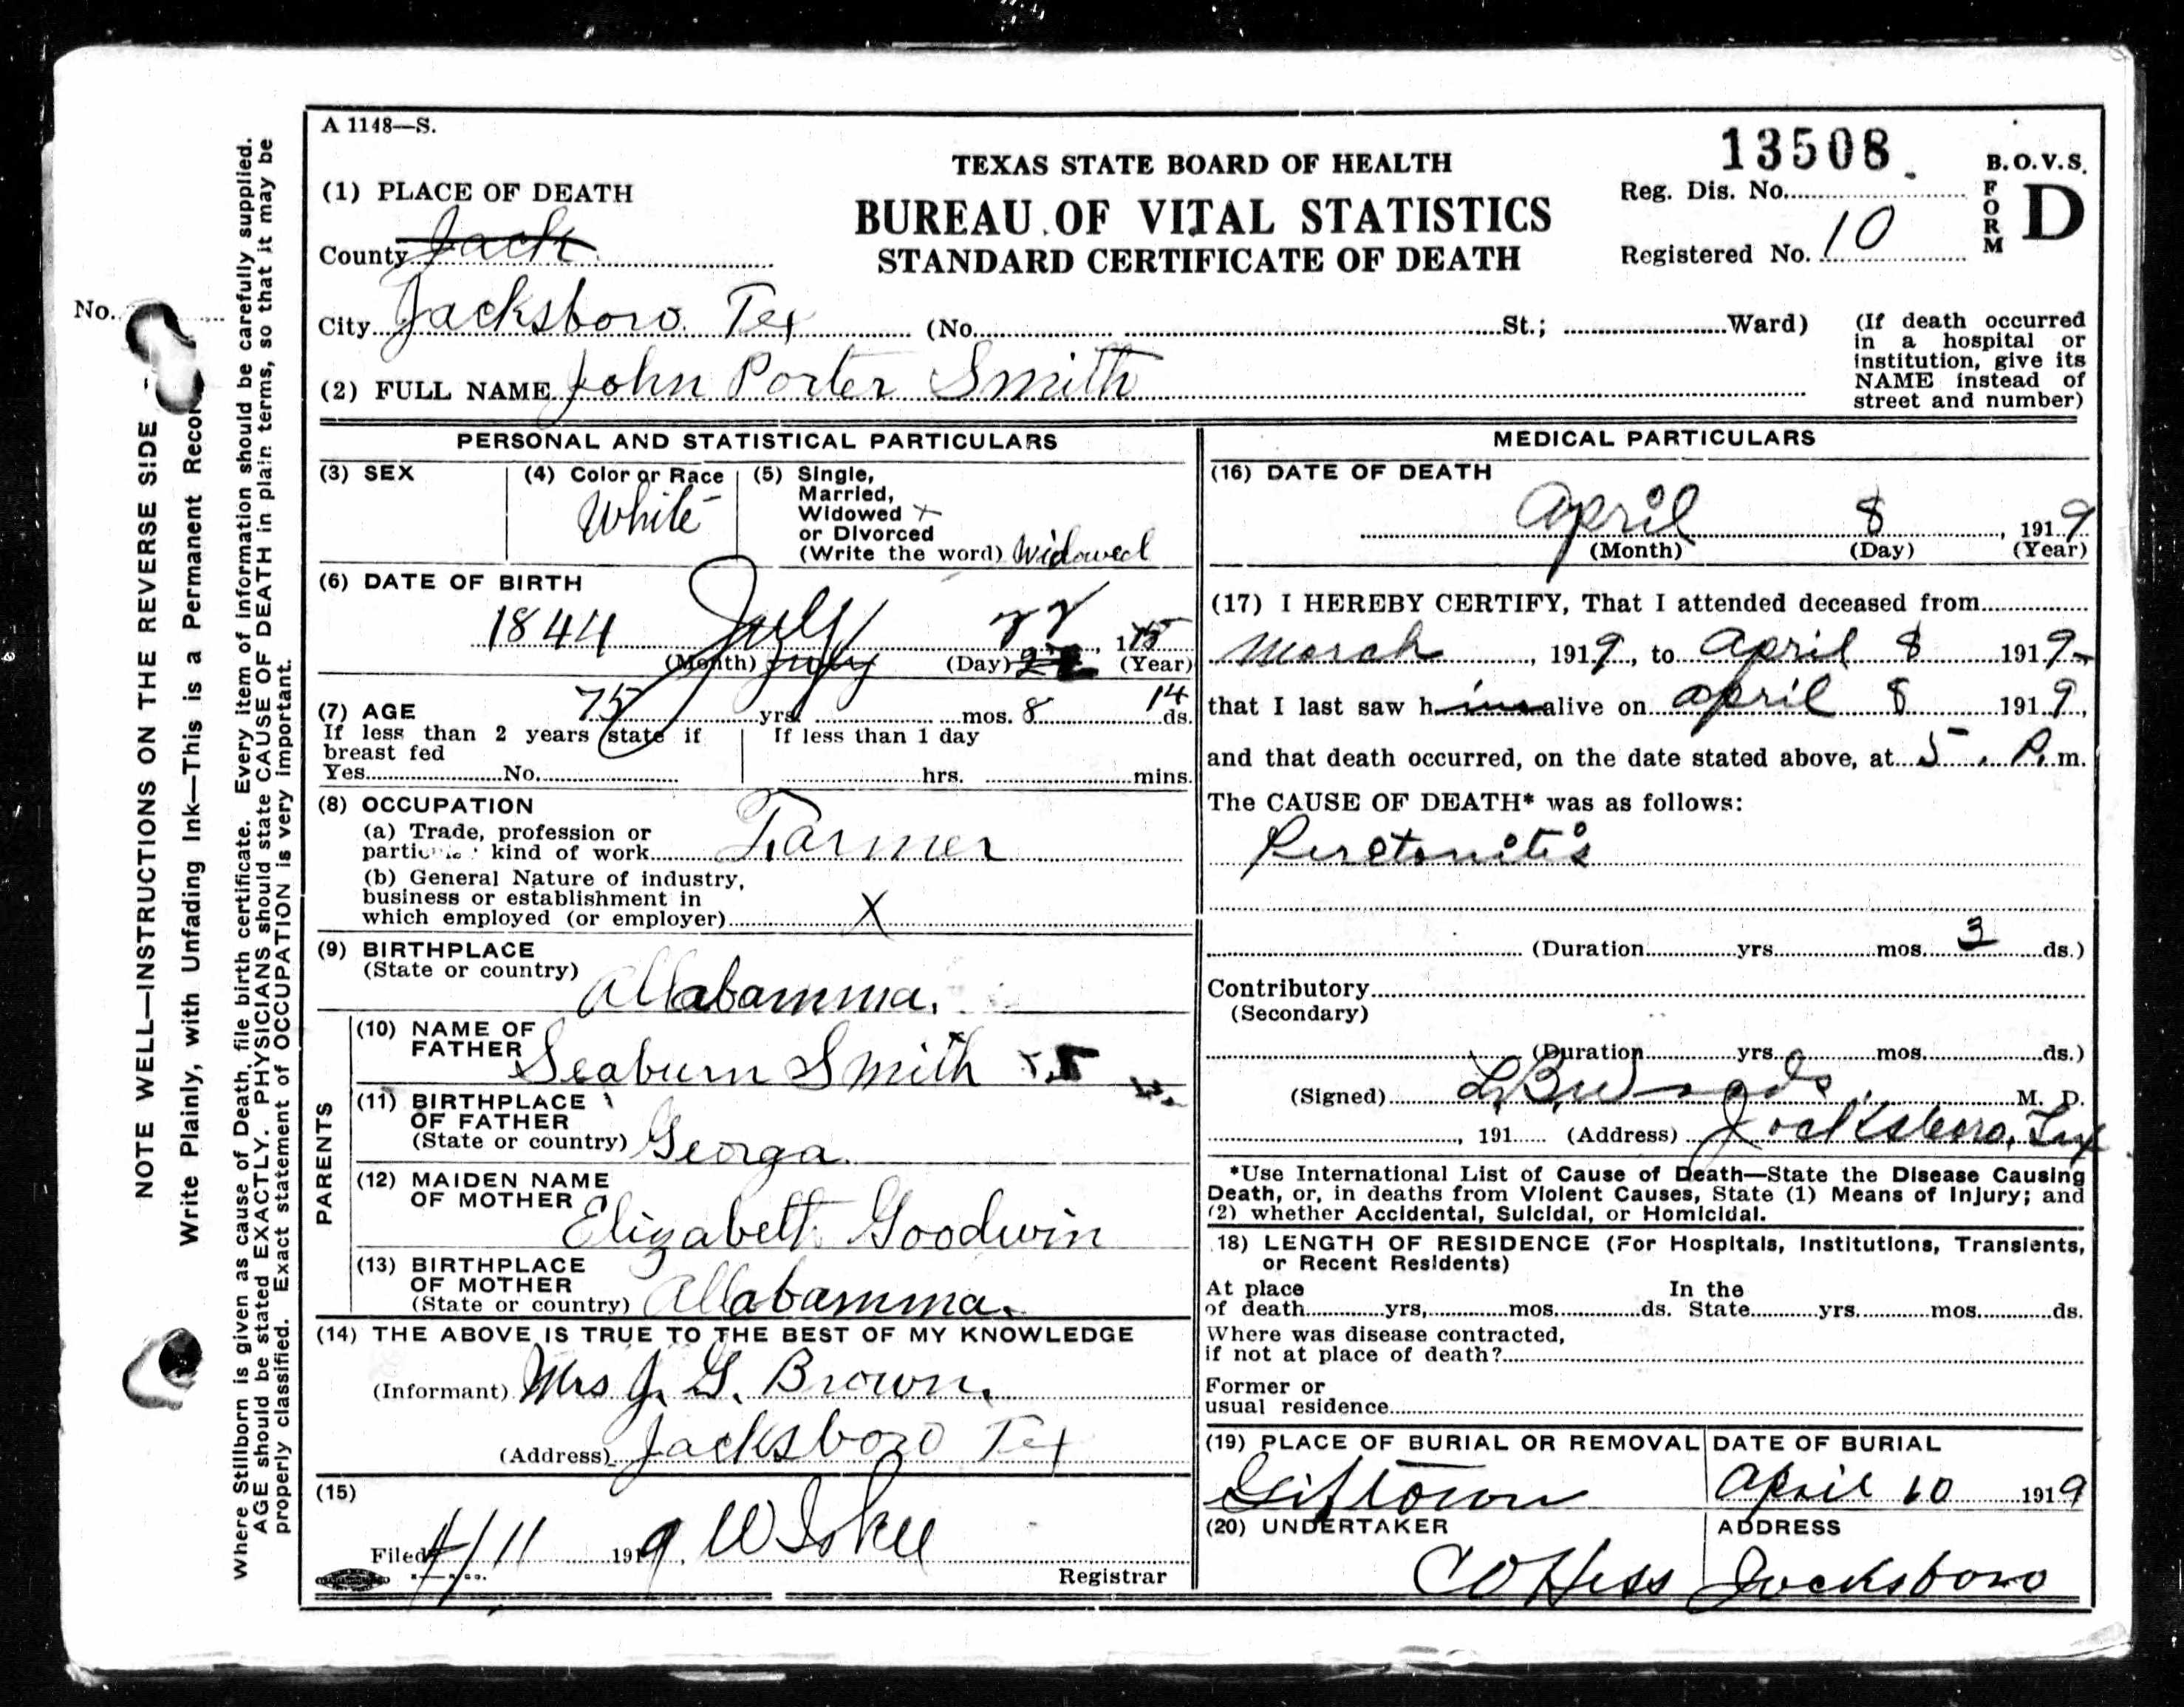 A 1148—S.
13508
TEXAS STATE BOARD OF HEALTH
B.O.V.S.
FORM D
BUREAU OF VITAL STATISTICS
STANDARD CERTIFICATE OF DEATH
Reg. Dis. No.
Registered No. 10
(1) PLACE OF DEATH
County Jack
City Jacksboro Tex (No. St.; Ward)
(If death occurred
in a hospital or
institution, give its
NAME instead of
street and number)
(2) FULL NAME John Porter Smith
PERSONAL AND STATISTICAL PARTICULARS
(3) SEX
(4) Color or Race
White
(5) Single,
Married,
Widowed x
or Divorced
(Write the word) Widowed
(6) DATE OF BIRTH
1844 July 22, 1
(Month) (Day) (Year)
(7) AGE 75 yrs. mos. 8 14 ds.
If less than 2 years state if
breast fed
Yes No.
If less than 1 day
hrs. mins.
(8) OCCUPATION
(a) Trade, profession or
kind of work Farmer
(b) General Nature of industry,
business or establishment in
which employed (or employer) X
(9) BIRTHPLACE
(State or country) Allabamma.
PARENTS
(10) NAME OF
FATHER Seaburn Smith
(11) BIRTHPLACE
OF FATHER
(State or country) Georga.
(12) MAIDEN NAME
OF MOTHER Elizabeth Goodwin
(13) BIRTHPLACE
OF MOTHER
(State or country) Allabamma.
(14) THE ABOVE IS TRUE TO THE BEST OF MY KNOWLEDGE
(Informant) Mrs J. G. Brown.
(Address) Jacksboro Tex
(15)
Filed 4/11 1919,
Registrar
MEDICAL PARTICULARS
(16) DATE OF DEATH
April 8, 1919
(Month) (Day) (Year)
(17) I HEREBY CERTIFY, That I attended deceased from
March, 1919, to April 8 1919
that I last saw him alive on April 8 1919,
and that death occurred, on the date stated above, at 5 P.m.
The CAUSE OF DEATH* was as follows:
Peretonitis
(Duration yrs. mos. 3 ds.)
Contributory
(Secondary)
(Duration yrs. mos. ds.)
(Signed) L B Woods M. D.
, 191 (Address) Jacksboro, Tex
*Use International List of Cause of Death—State the Disease Causing
Death, or, in deaths from Violent Causes, State (1) Means of Injury; and
(2) whether Accidental, Suicidal, or Homicidal.
18) LENGTH OF RESIDENCE (For Hospitals, Institutions, Transients,
or Recent Residents)
At place In the
of death yrs, mos. ds. State yrs. mos. ds.
Where was disease contracted,
if not at place of death?
Former or
usual residence
(19) PLACE OF BURIAL OR REMOVAL
DATE OF BURIAL
April 10 1919
(20) UNDERTAKER
C O Hess
ADDRESS
Jacksboro
No.
NOTE WELL—INSTRUCTIONS ON THE REVERSE SIDE
Write Plainly, with Unfading Ink—This is a Permanent Record
Where Stillborn is given as cause of Death, file birth certificate. Every item of information should be carefully supplied.
AGE should be stated EXACTLY. PHYSICIANS should state CAUSE OF DEATH in plain terms, so that it may be
properly classified. Exact statement of OCCUPATION is very important.